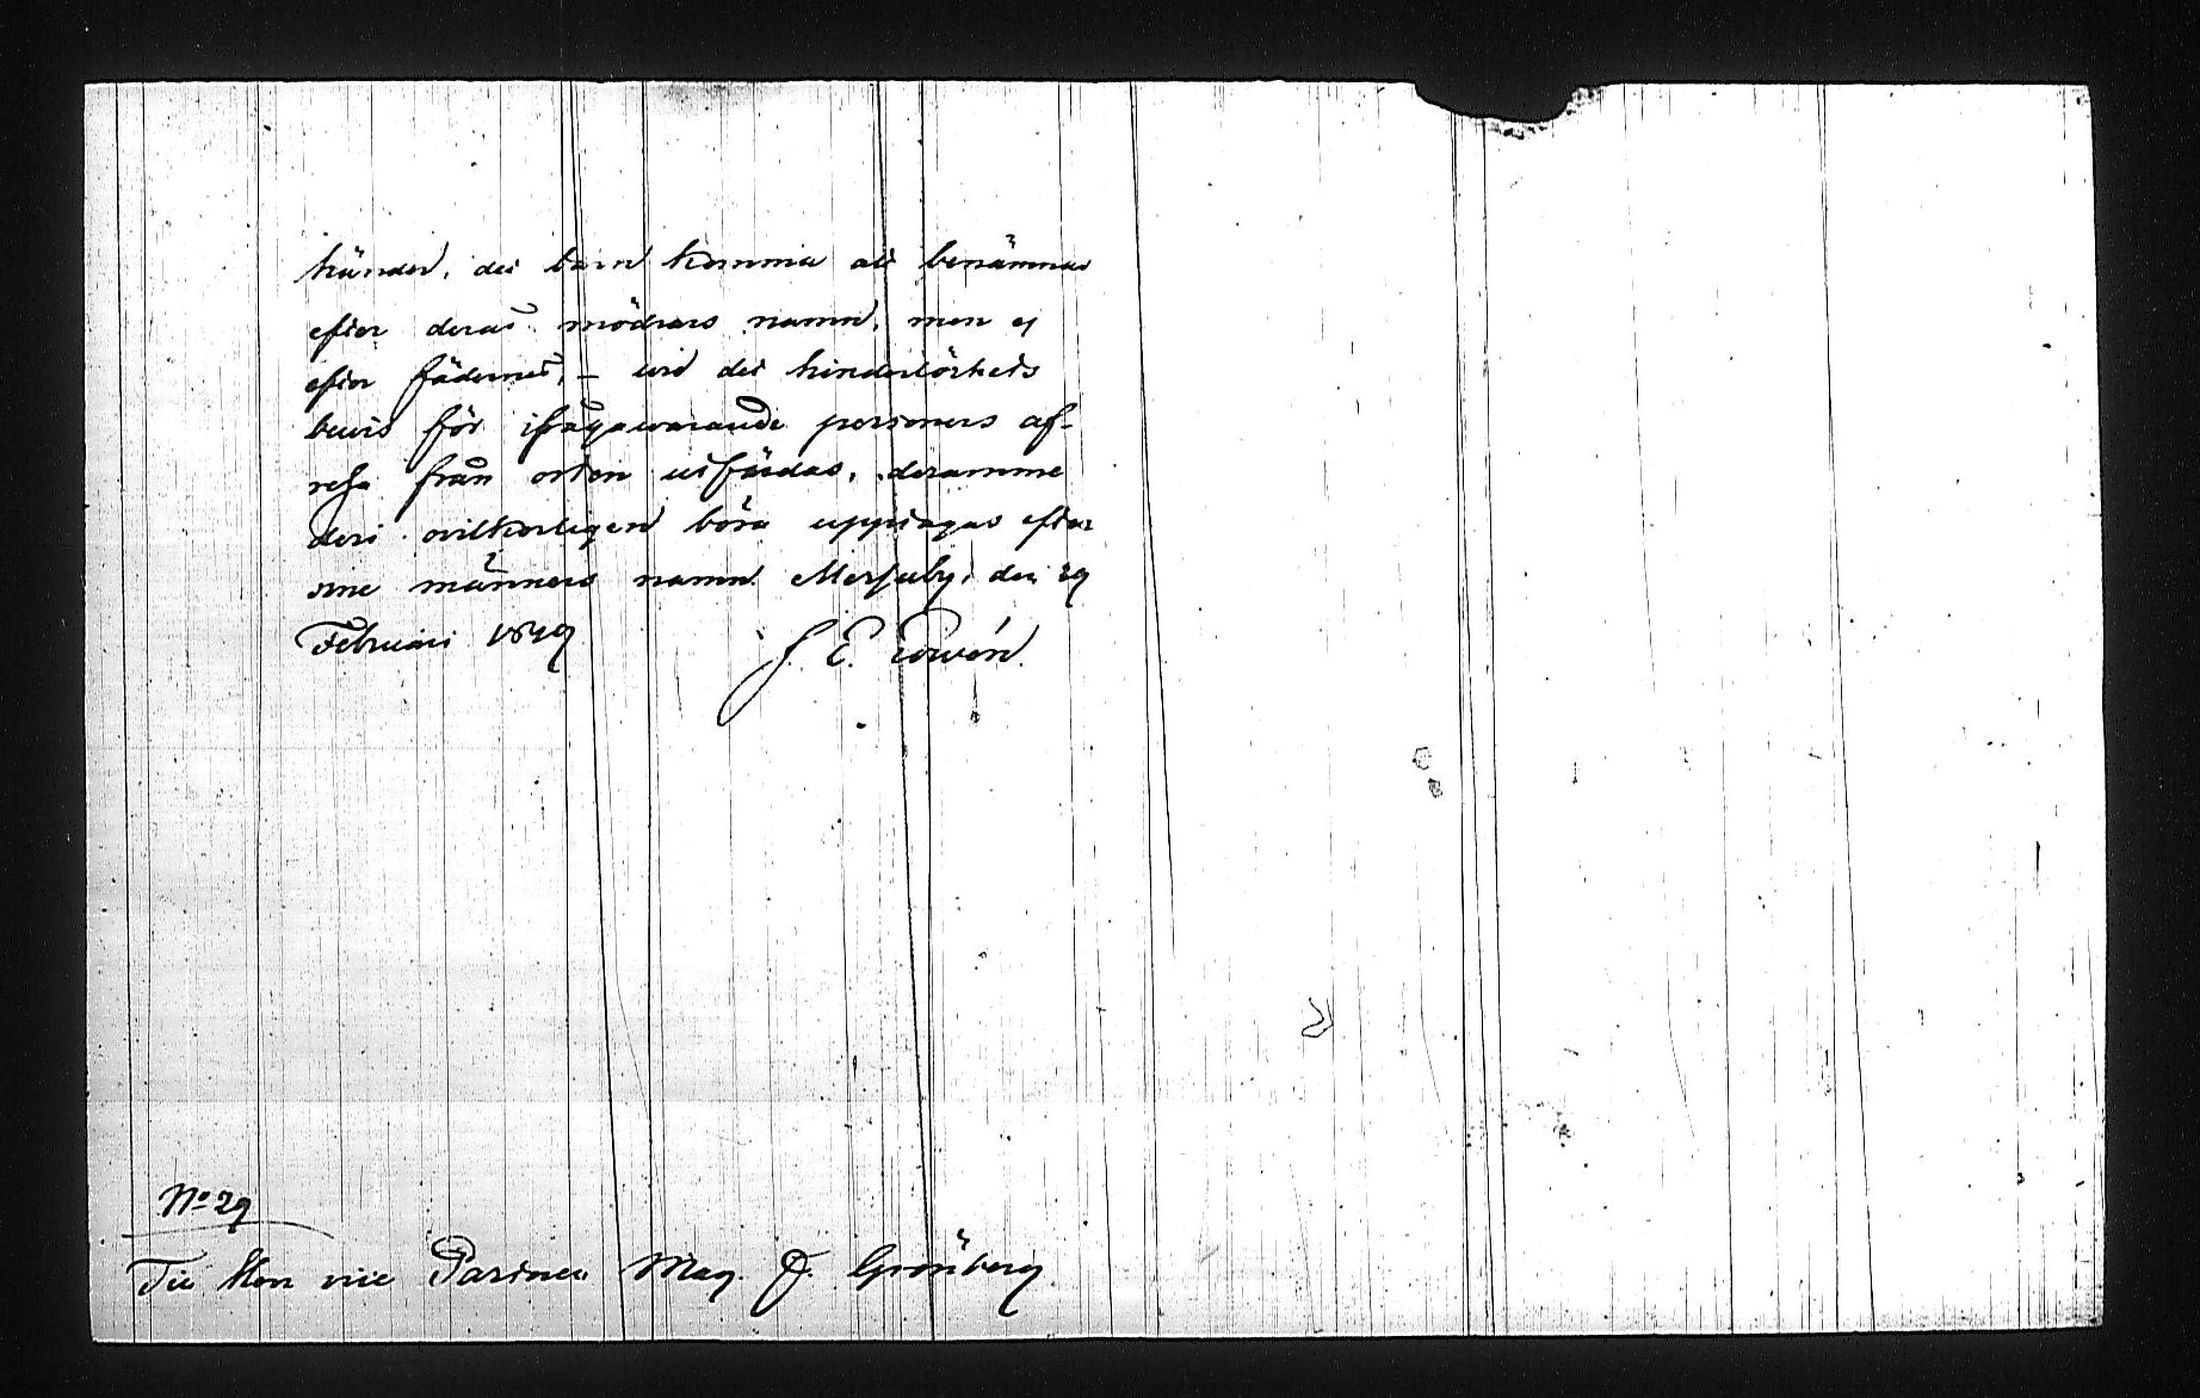 händer, det barn komma att benämnas
efter deras mödrars namn, men ej
efter fädernes, – wid det hinderlöshets
bewis för ifrågawarande personers af-
resa från orten utfärdas, deramme
deri ovilkorligen böra upptagas efter
sine männers namn. den 29
Februari 1849 J. E.
No 29
Till Herr vice Pastoren Mag. J. Grönberg